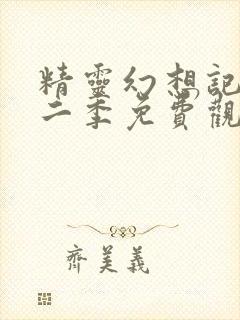 精靈幻想記
二季免費觀
齊美義